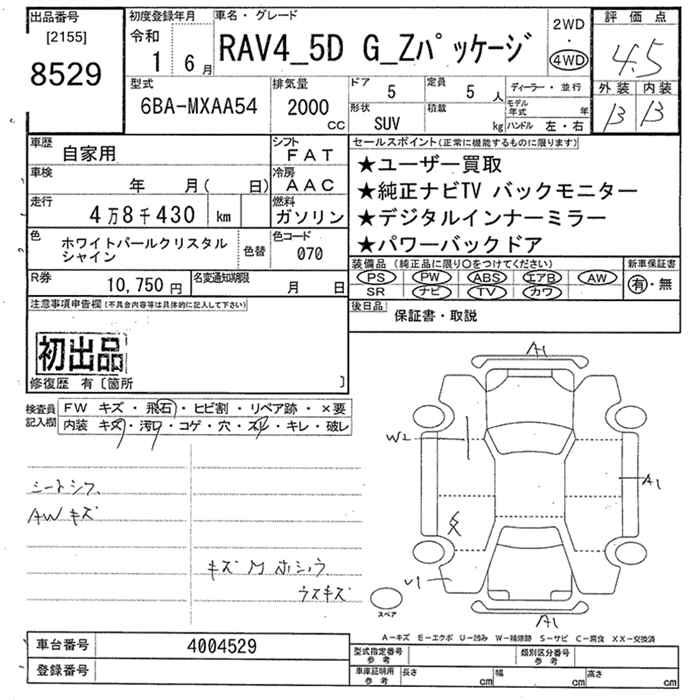 出品番号 初度登録年月 車名・グレード 評価点
[2155] 令和 2WD
8529 1 6月 RAV4_5D G_Zパッケージ ・ 4.5
4WD
外装 内装
B B
型式 排気量 ドア 5 定員 5 人 ディーラー・並行
6BA-MXAA54 2000 cc 形状 SUV 積載 kg モデル年式 年
ハンドル 左・右
車歴 自家用 シフト FAT セールスポイント(正常に機能するものに限ります)
★ユーザー買取
車検 年 月( 日) 冷房 AAC ★純正ナビTV バックモニター
走行 4万8千430 km 燃料 ガソリン ★デジタルインナーミラー
色 ホワイトパールクリスタル 色替 色コード ★パワーバックドア
シャイン 070
装備品 (純正品に限り○をつけてください) 新車保証書
R券 10,750円 名変通知期限 月 日 PS PW ABS エアB AW 有・無
SR ナビ TV カワ
注意事項申告欄(不具合内容等は具体的に記入して下さい) 後日品 保証書・取説
初出品
修復歴 有〔箇所 〕
検査員 FW キズ・飛石・ヒビ割・リペア跡・×要
記入欄 内装 キズ・汚れ・コゲ・穴・スレ・キレ・破レ
A1
W2
シートシワ A1
AWキズ
キズ M ホシュウ
ウスキズ
U1
スペア A1
A-キズ E-エクボ U-凹み W-補修跡 S-サビ C-腐食 XX-交換済
車台番号 4004529 型式指定番号 参考 類別区分番号 参考
登録番号 車庫証明用 参考 長さ cm 幅 cm 高さ cm